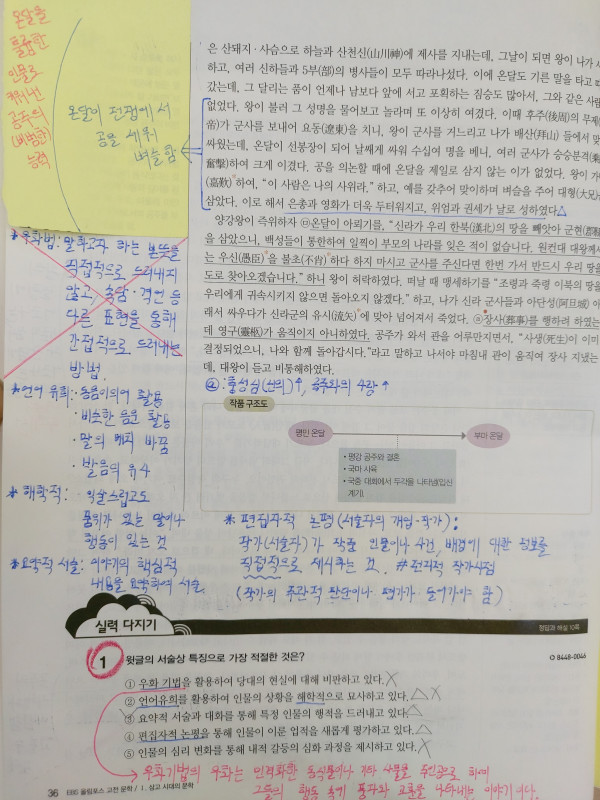 온달을
평범한
인물로
공동의
(비범한)
능력
온달이 전쟁에서
공을 세워
벼슬함
은 산돼지·사슴으로 하늘과 산천신(山川神)에 제사를 지내는데, 그날이 되면 왕이 나가 사
하고, 여러 신하들과 5부(部)의 병사들이 모두 따라나섰다. 이에 온달도 기른 말을 타고 따
갔는데, 그 달리는 품이 언제나 남보다 앞에 서고 포획하는 짐승도 많아서, 그와 같은 사람
없었다. 왕이 불러 그 성명을 물어보고 놀라며 또 이상히 여겼다. 이때 후주(後周)의 무제
帝)가 군사를 보내어 요동(遼東)을 치니, 왕이 군사를 거느리고 나가 배산(拜山) 들에서 맞
싸웠는데, 온달이 선봉장이 되어 날쌔게 싸워 수십여 명을 베니, 여러 군사가 승승분격(
奮擊)하여 크게 이겼다. 공을 의논할 때에 온달을 제일로 삼지 않는 이가 없었다. 왕이 가
(嘉歎)하여, “이 사람은 나의 사위라.” 하고, 예를 갖추어 맞이하며 벼슬을 주어 대형(大兄)
삼았다. 이로 해서 은총과 영화가 더욱 두터워지고, 위엄과 권세가 날로 성하였다△
양강왕이 즉위하자 온달이 아뢰기를, “신라가 우리 한북(漢北)의 땅을 빼앗아 군현(郡縣
을 삼았으니, 백성들이 통한하여 일찍이 부모의 나라를 잊은 적이 없습니다. 원컨대 대왕께서
는 우신(愚臣)을 불초(不肖)하다 하지 마시고 군사를 주신다면 한번 가서 반드시 우리 땅을
도로 찾아오겠습니다.” 하니 왕이 허락하였다. 떠날 때 맹세하기를 “조령과 죽령 이북의 땅을
우리에게 귀속시키지 않으면 돌아오지 않겠다.” 하고, 나가 신라 군사들과 아단성(阿旦城) 아
래서 싸우다가 신라군의 유시(流矢)에 맞아 넘어져서 죽었다. ⓐ장사(葬事)를 행하려 하였는
데 영구(靈柩)가 움직이지 아니하였다. 공주가 와서 관을 어루만지면서, “사생(死生)이 이미
결정되었으니, 나와 함께 돌아갑시다.”라고 말하고 나서야 마침내 관이 움직여 장사 지냈는
데, 대왕이 듣고 비통해하였다.
ⓐ: 충성심 ↑, 공주와의 사랑 ↑
* 우화법: 말하고자 하는 본뜻을
직접적으로 드러내지
않고, 속담·격언 등
다른 표현을 통해
간접적으로 드러내는
방법.
* 언어 유희: ·동음이의어 활용
·비슷한 음운 활용
·말의 배치 바꿈
·발음의 유사
* 해학적: 익살스럽고도
품위가 있는 말이나
행동이 있는 것
* 요약적 서술: 이야기의 핵심적
내용을 요약하여 서술
작품 구조도
평민 온달
부마 온달
• 평강 공주와 결혼
• 국마 사육
• 국중 대회에서 두각을 나타냄(입신
계기)
* 편집자적 논평(서술자의 개입·작가):
작가(서술자)가 작품 인물이나 사건, 배경에 대한 정보를
직접적으로 제시하는 것. #전지적 작가시점
(작가의 주관적 판단이나 평가가 들어가야 함)
실력 다지기
정답과 해설 10쪽
1 윗글의 서술상 특징으로 가장 적절한 것은?
8448-0046
① 우화 기법을 활용하여 당대의 현실에 대해 비판하고 있다.
② 언어유희를 활용하여 인물의 상황을 해학적으로 묘사하고 있다.
③ 요약적 서술과 대화를 통해 특정 인물의 행적을 드러내고 있다.
④ 편집자적 논평을 통해 인물이 이룬 업적을 새롭게 평가하고 있다.
⑤ 인물의 심리 변화를 통해 내적 갈등의 심화 과정을 제시하고 있다.
우화기법의 우화는 인격화한 동식물이나 기타 사물을 주인공으로 하여
그들의 행동 속에 풍자와 교훈을 나타내는 이야기이다.
36 EBS 올림포스 고전 문학 / Ⅰ. 상고 시대의 문학